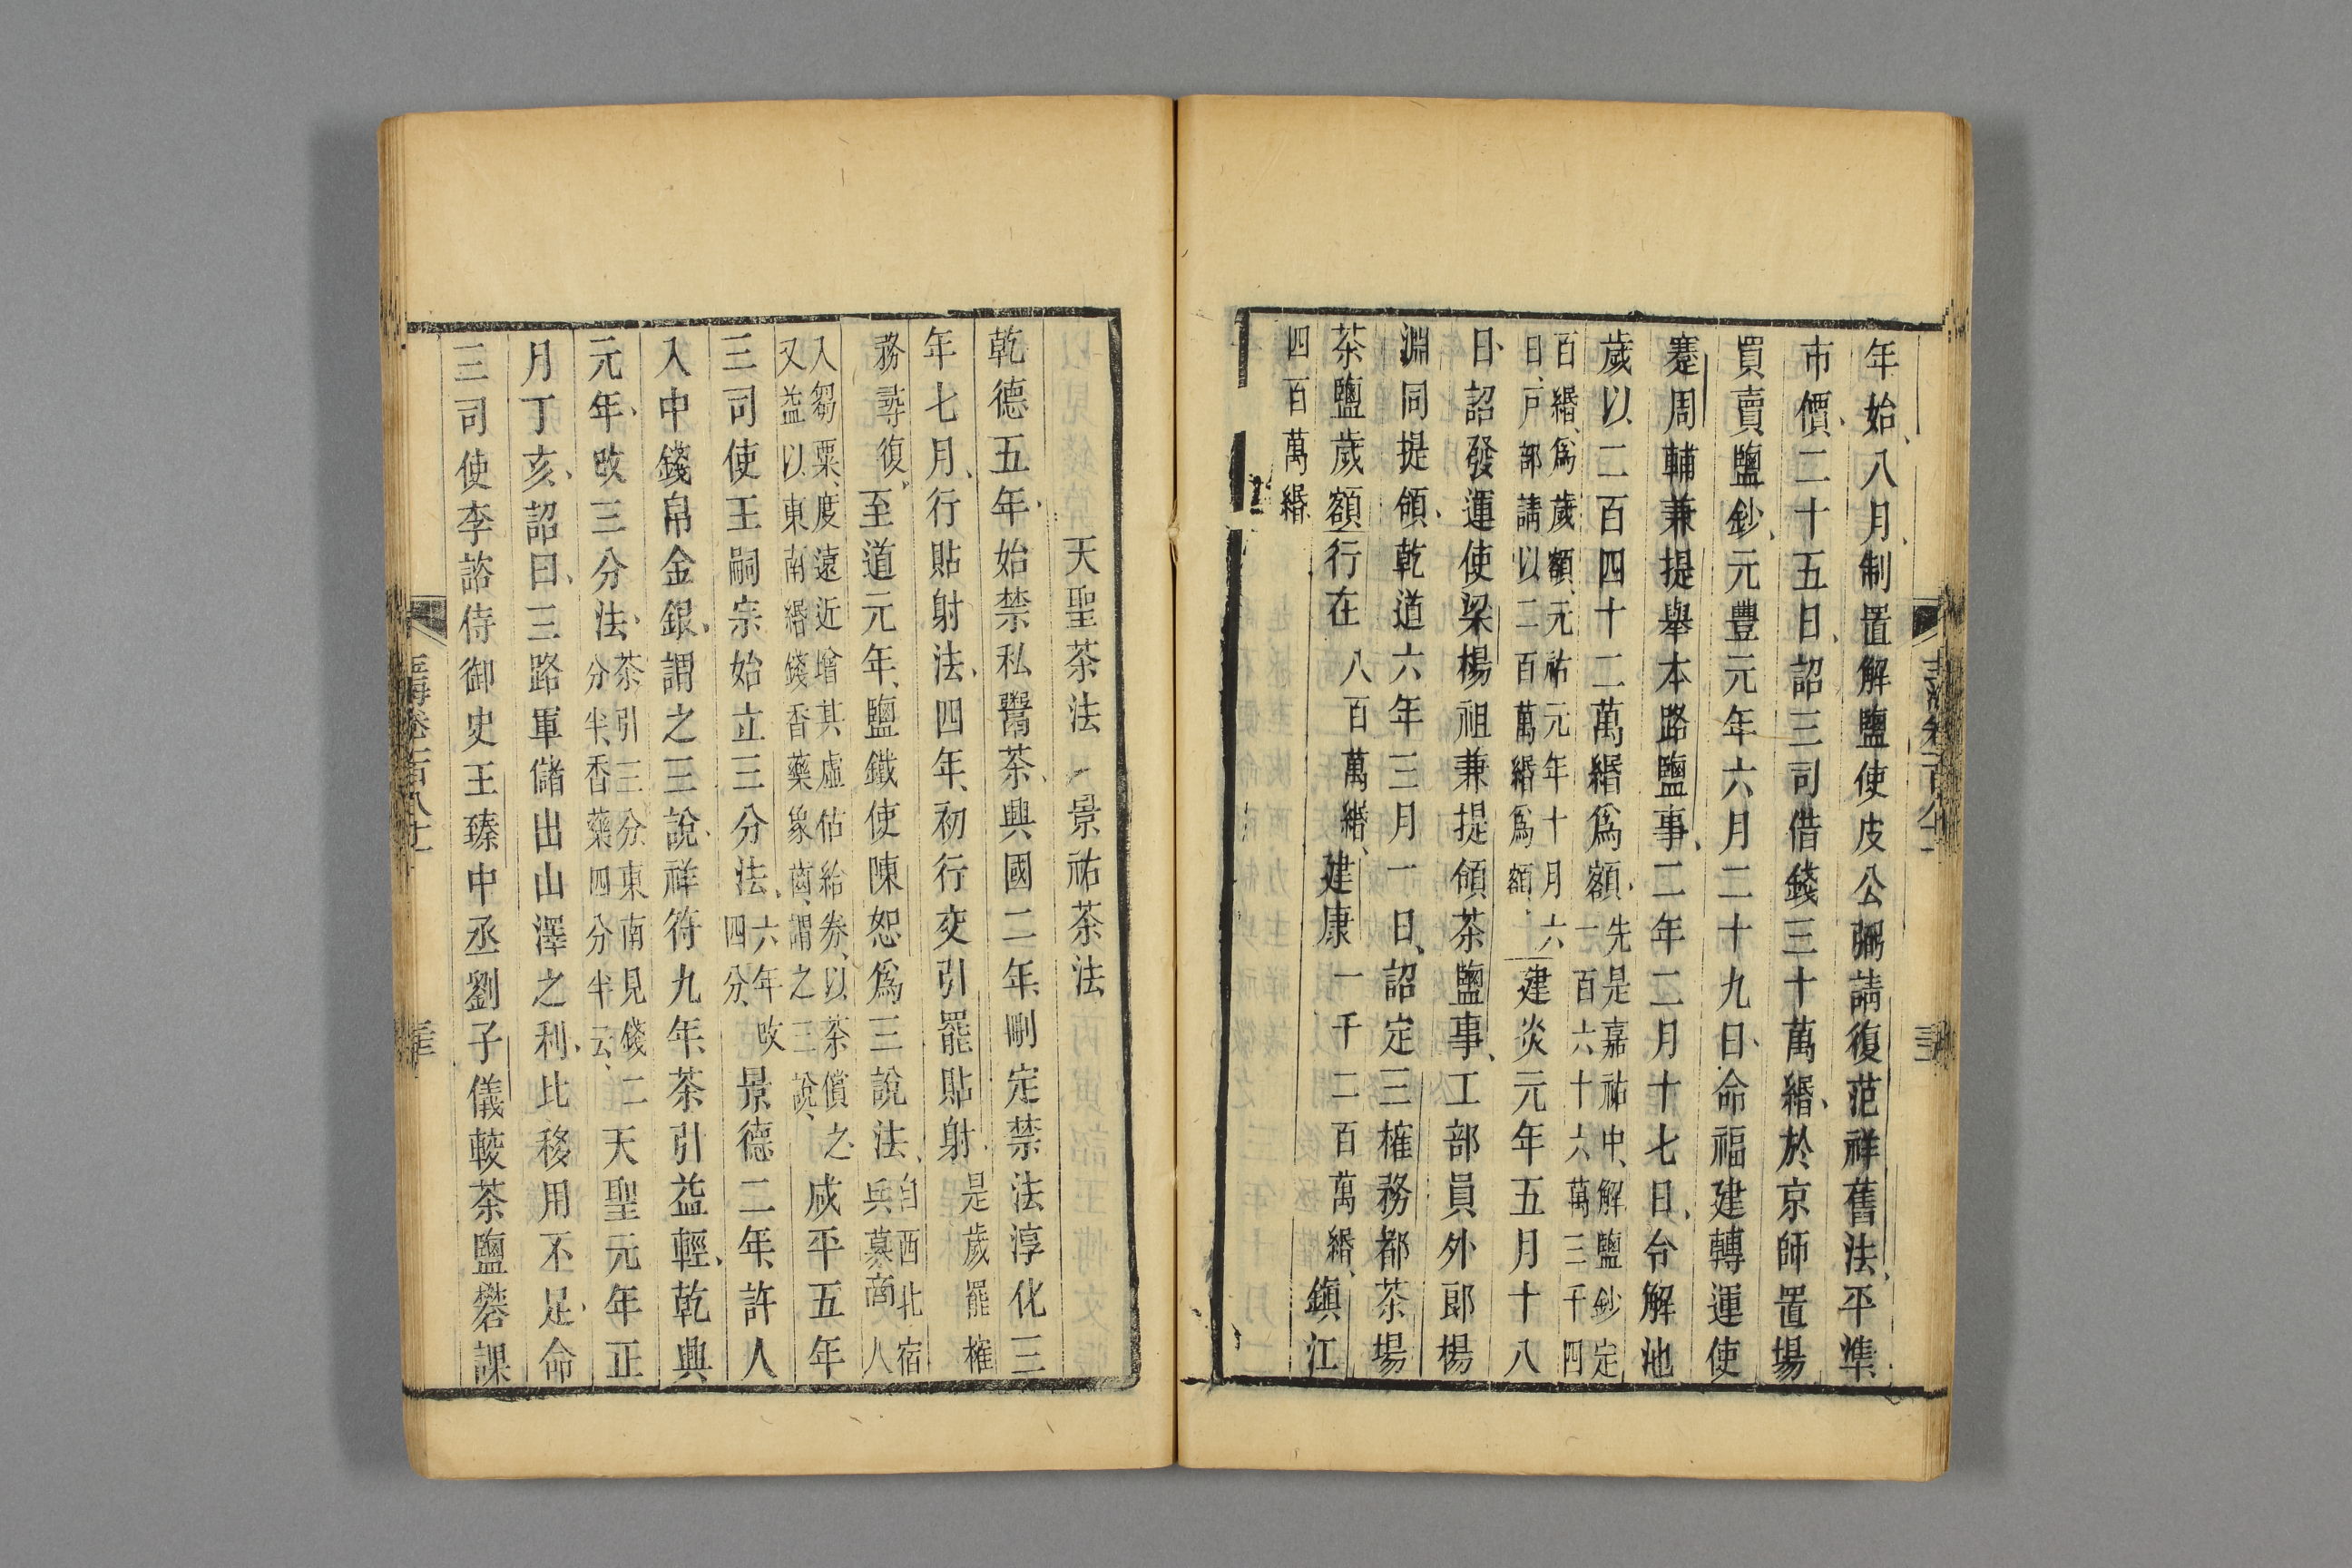 年始八月制置解鹽使皮公弼請復范祥舊法平準
市價二十五日詔三司借錢三十萬緡於京師置場
買賣鹽鈔元豐元年六月二十九日命福建轉運使
蹇周輔兼提舉本路鹽事二年二月十七日台解池
歲以二百四十二萬緡爲額先是嘉祐中解鹽鈔定
一百六十六萬三千四
百緡爲歲額元祐元年十月六
日戶部請以二百萬緡爲額建炎元年五月十八
日詔發運使梁楊祖兼提領茶鹽事工部員外郎楊
淵同提領乾道六年三月一日詔定三榷務都茶場
茶鹽歲額行在八百萬緡建康一千二百萬緡鎮江
四百萬緡
天聖茶法 景祐茶法
乾德五年始禁私鬻茶興國二年刪定禁法淳化三
年七月行貼射法四年初行交引罷貼射是歲罷榷
務尋復至道元年鹽鐵使陳恕爲三說法自西北宿
兵募商人
入芻粟度遠近增其虛估給券以茶償之
又益以東南緡錢香藥象齒謂之三說咸平五年
三司使王嗣宗始立三分法六年改
四分景德二年許人
入中錢帛金銀謂之三說祥符九年茶引益輕乾興
元年改三分法茶引三分東南見錢二
分半香藥四分半云天聖元年正
月丁亥詔曰三路軍儲出山澤之利比移用不足命
三司使李諮侍御史王臻中丞劉子儀較茶鹽礬課
玉海卷一百八十一